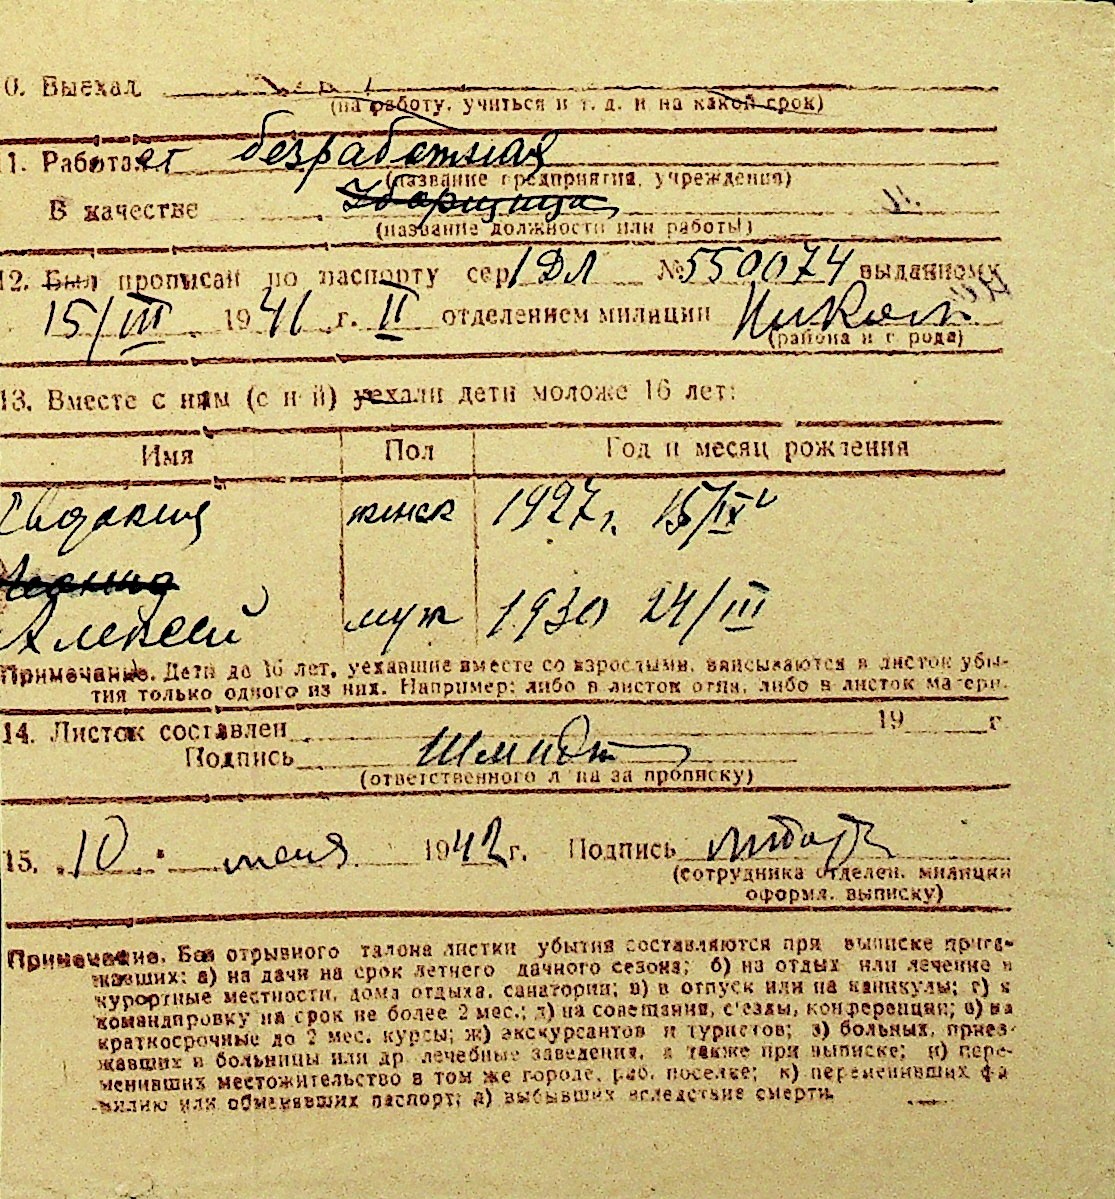 0. Выехал
(на работу, учиться и т. д. и на какой срок)
1. Работает безработная
(название предприятия, учреждения)
В качестве Уборщица
(название должности или работы)
12. Был прописан по паспорту сер. 1 ДЛ № 550074 выданному
15/III 1941 г. II отделением милиции Никол
(района и города)
13. Вместе с ним (с ней) уехали дети моложе 16 лет:
Имя Пол Год и месяц рождения
Евдокия женск 1927 г. 15/IX
Леонид
Алексей муж 1930 24/III
Примечание. Дети до 16 лет, уехавшие вместе со взрослыми, вписываются в листок убы-
тия только одного из них. Например: либо в листок отца, либо в листок матери.
14. Листок составлен 19 г
Подпись Шмидт
(ответственного лица за прописку)
15. 10 июня 1942 г. Подпись
(сотрудника отделен. милиции
оформл. выписку)
Примечание. Без отрывного талона листки убытия составляются при выписке приез-
жавших: а) на дачи на срок летнего дачного сезона; б) на отдых или лечение в
курортные местности, дома отдыха, санатории; в) в отпуск или на каникулы; г) в
командировку на срок не более 2 мес.; д) на совещания, с'езды, конференции; е) на
краткосрочные до 2 мес. курсы; ж) экскурсантов и туристов; з) больных, приез-
жавших в больницы или др. лечебные заведения, а также при выписке; и) пере-
менивших местожительство в том же городе, раб. поселке; к) переменивших фа
милию или обменявших паспорт; л) выбывших вследствие смерти.